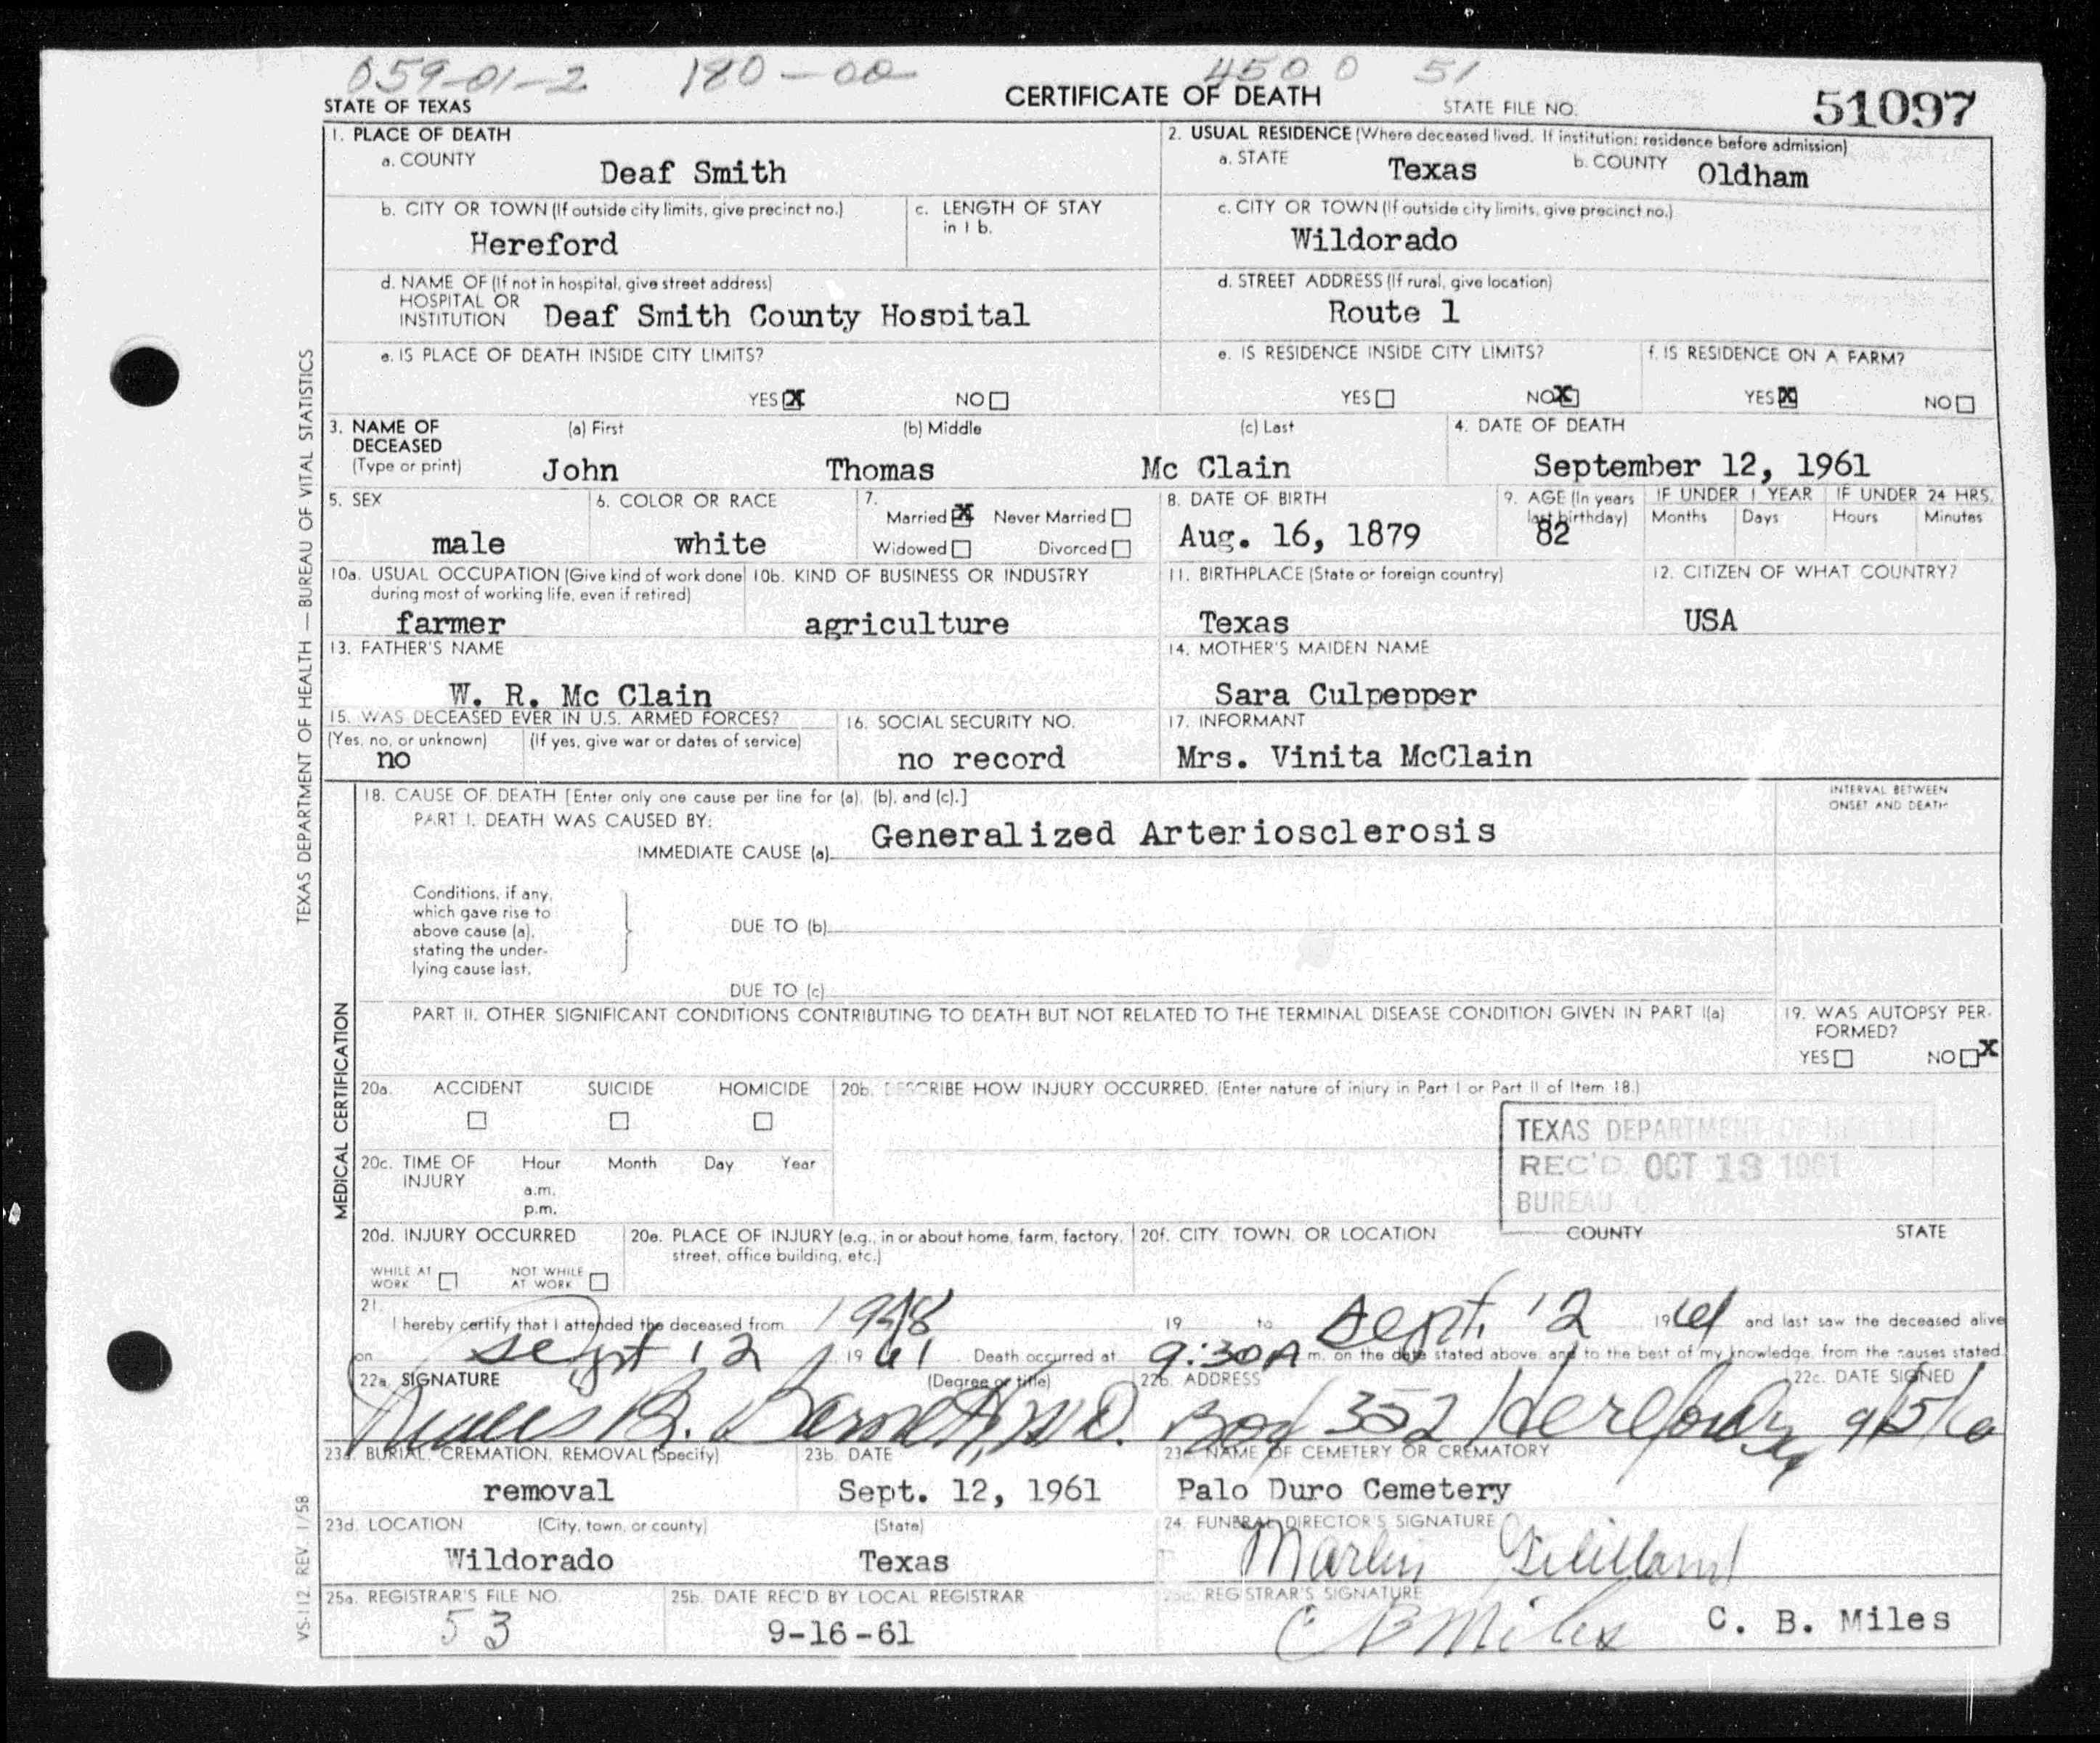 059-01-2 180-00 4500 51
STATE OF TEXAS CERTIFICATE OF DEATH STATE FILE NO. 51097
1. PLACE OF DEATH 2. USUAL RESIDENCE (Where deceased lived. If institution: residence before admission)
a. COUNTY Deaf Smith a. STATE Texas b. COUNTY Oldham
b. CITY OR TOWN (If outside city limits, give precinct no.) c. LENGTH OF STAY in 1 b. c. CITY OR TOWN (If outside city limits, give precinct no.)
Hereford Wildorado
d. NAME OF (If not in hospital, give street address) d. STREET ADDRESS (If rural, give location)
HOSPITAL OR INSTITUTION Deaf Smith County Hospital Route 1
e. IS PLACE OF DEATH INSIDE CITY LIMITS? e. IS RESIDENCE INSIDE CITY LIMITS? f. IS RESIDENCE ON A FARM?
YES X NO YES NO X YES X NO
3. NAME OF DECEASED (a) First (b) Middle (c) Last 4. DATE OF DEATH
(Type or print) John Thomas Mc Clain September 12, 1961
5. SEX 6. COLOR OR RACE 7. 8. DATE OF BIRTH 9. AGE (In years last birthday) IF UNDER 1 YEAR IF UNDER 24 HRS.
Married X Never Married Months Days Hours Minutes
male white Widowed Divorced Aug. 16, 1879 82
10a. USUAL OCCUPATION (Give kind of work done 10b. KIND OF BUSINESS OR INDUSTRY 11. BIRTHPLACE (State or foreign country) 12. CITIZEN OF WHAT COUNTRY?
during most of working life, even if retired)
farmer agriculture Texas USA
13. FATHER'S NAME 14. MOTHER'S MAIDEN NAME
W. R. Mc Clain Sara Culpepper
15. WAS DECEASED EVER IN U.S. ARMED FORCES? 16. SOCIAL SECURITY NO. 17. INFORMANT
(Yes, no, or unknown) (If yes, give war or dates of service)
no no record Mrs. Vinita McClain
18. CAUSE OF DEATH [Enter only one cause per line for (a), (b), and (c).] INTERVAL BETWEEN ONSET AND DEATH
PART I. DEATH WAS CAUSED BY:
IMMEDIATE CAUSE (a) Generalized Arteriosclerosis
Conditions, if any,
which gave rise to
above cause (a), DUE TO (b)
stating the under-
lying cause last.
DUE TO (c)
PART II. OTHER SIGNIFICANT CONDITIONS CONTRIBUTING TO DEATH BUT NOT RELATED TO THE TERMINAL DISEASE CONDITION GIVEN IN PART I(a) 19. WAS AUTOPSY PER-
FORMED?
YES NO X
20a. ACCIDENT SUICIDE HOMICIDE 20b. DESCRIBE HOW INJURY OCCURRED. (Enter nature of injury in Part I or Part II of Item 18.)
TEXAS DEPARTMENT OF HEALTH
20c. TIME OF INJURY Hour Month Day Year REC'D OCT 13 1961
a.m.
p.m. BUREAU OF
20d. INJURY OCCURRED 20e. PLACE OF INJURY (e.g., in or about home, farm, factory, street, office building, etc.) 20f. CITY, TOWN, OR LOCATION COUNTY STATE
WHILE AT WORK NOT WHILE AT WORK
21. I hereby certify that I attended the deceased from 1948 19 to Sept. 12 1961 and last saw the deceased alive
on Sept 12 1961. Death occurred at 9:30 A m. on the date stated above, and to the best of my knowledge, from the causes stated.
22a. SIGNATURE (Degree or title) 22b. ADDRESS 22c. DATE SIGNED
B. Barnett, M.D. Box 352 Hereford,
23a. BURIAL, CREMATION, REMOVAL (Specify) 23b. DATE 23c. NAME OF CEMETERY OR CREMATORY
removal Sept. 12, 1961 Palo Duro Cemetery
23d. LOCATION (City, town, or county) (State) 24. FUNERAL DIRECTOR'S SIGNATURE
Wildorado Texas Marlin Gililland
25a. REGISTRAR'S FILE NO. 25b. DATE REC'D BY LOCAL REGISTRAR 25c. REGISTRAR'S SIGNATURE
53 9-16-61 C B Miles C. B. Miles
TEXAS DEPARTMENT OF HEALTH — BUREAU OF VITAL STATISTICS
MEDICAL CERTIFICATION
VS-112 REV. 1/58